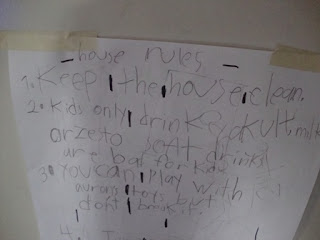 - house rules -
1. Keep the house clean.
2. Kids only drink yakult, milk
soft drink
are bad for kids
3. You can play with
toys but
don't break it.
4. I